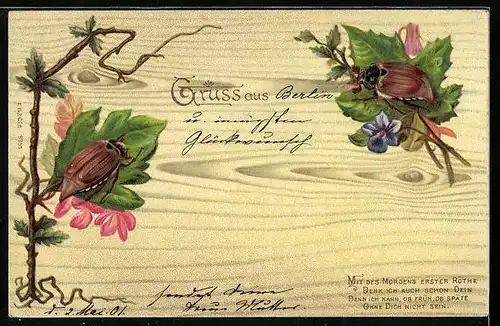 Gruss aus Berlin
u. innigsten
Glückwunsch
MIT DES MORGENS ERSTER RÖTHE
DENK ICH AUCH SCHON DEIN
DENN ICH KANN, OB FRÜH, OB SPÄTE
OHNE DICH NICHT SEIN.
sendet Deine
d. 3. Mai 01. treue Mutter.